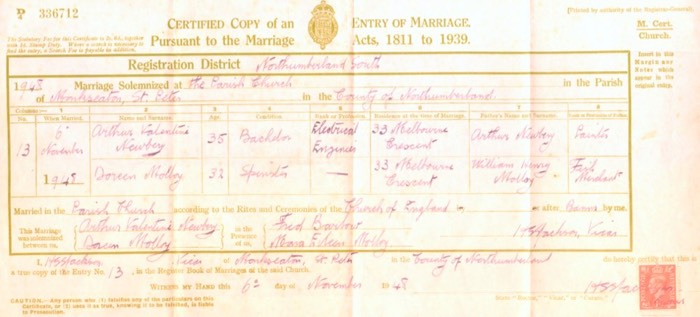 P 336712
CERTIFIED COPY of an ENTRY OF MARRIAGE.
Pursuant to the Marriage Acts, 1811 to 1939.
[Printed by authority of the Registrar-General.]
M. Cert.
Church.
Insert in this Margin any Notes which appear in the original entry.
Registration District Northumberland South
1948 Marriage Solemnized at the Parish Church in the Parish
of Monkseaton, St. Peter in the County of Northumberland
Columns:— 1 2 3 4 5 6 7 8
No. When Married. Name and Surname. Age. Condition. Rank or Profession. Residence at the time of Marriage. Father's Name and Surname. Rank or Profession of Father.
13 6th November 1948 Arthur Valentine Newby 35 Bachelor Electrical Engineer 33 Melbourne Crescent Arthur Newby Painter
Doreen Molloy 32 Spinster — 33 Melbourne Crescent William Henry Molloy Merchant
Married in the Parish Church according to the Rites and Ceremonies of the Church of England — after Banns by me,
This Marriage was solemnized between us, Arthur Valentine Newby Doreen Molloy in the Presence of us, Fred Molloy Vicar
I, Vicar of Monkseaton, St. Peter in the County of Northumberland do hereby certify that this is
a true copy of the Entry No. 13, in the Register Book of Marriages of the said Church.
Witness my Hand this 6th day of November 1948.
CAUTION.—Any person who (1) falsifies any of the particulars on this Certificate, or (2) uses it as true, knowing it to be falsified, is liable to Prosecution.